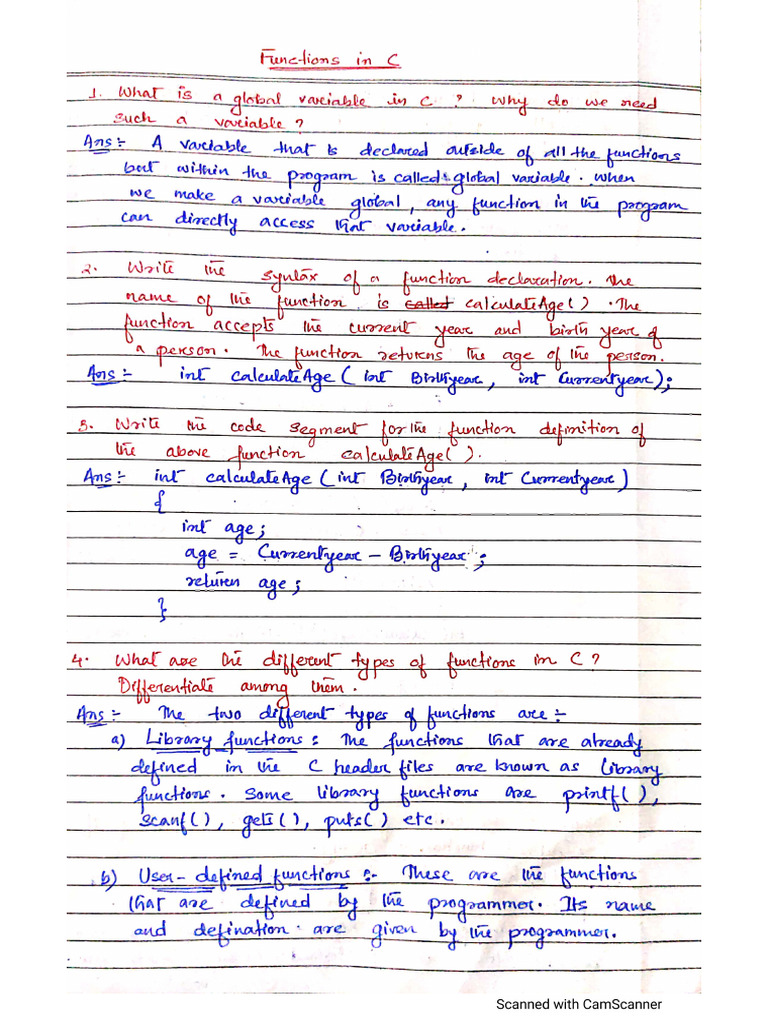 Functions in C
1. What is a global variable in C ? Why do we need
such a variable ?
Ans :- A variable that is declared outside of all the functions
but within the program is called global variable. When
we make a variable global, any function in the program
can directly access that variable.
2. Write the syntax of a function declaration. The
name of the function is called calculateAge() . The
function accepts the current year and birth year of
a person. The function returns the age of the person.
Ans :- int calculateAge ( int Birthyear , int Currentyear);
3. Write the code segment for the function definition of
the above function calculateAge( ).
Ans :- int calculateAge ( int Birthyear , int Currentyear )
{
int age ;
age = Currentyear - Birthyear ;
return age ;
}
4. What are the different types of functions in C ?
Differentiate among them.
Ans :- The two different types of functions are :-
a) Library functions : The functions that are already
defined in the C header files are known as library
functions. Some library functions are printf( ),
scanf( ), gets( ), puts( ) etc.
b) User-defined functions :- These are the functions
that are defined by the programmer. Its name
and defination are given by the programmer.
Scanned with CamScanner